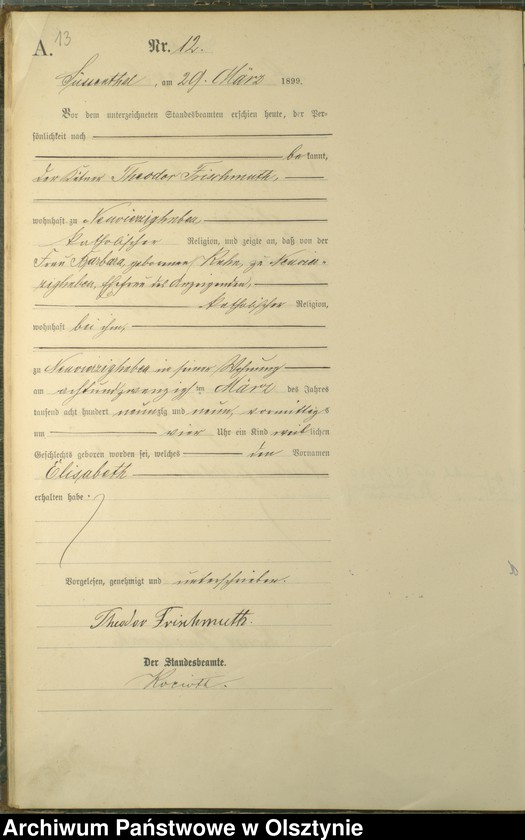 A. 13
Nr. 12.
Süssenthal, am 29. März 1899.
Vor dem unterzeichneten Standesbeamten erschien heute, der Per-
sönlichkeit nach
be kannt,
der Kätner Theodor Frischmuth,
wohnhaft zu Neuvierzighuben,
katholischer Religion, und zeigte an, daß von der
Frau Barbara, geborenen, zu Neuvier-
zighuben, Ehefrau des Anzeigenden,
katholischer Religion,
wohnhaft bei ihm,
zu Neuvierzighuben in seiner Wohnung
am achtundzwanzigsten März des Jahres
tausend acht hundert neunzig und neun, vormittags
um vier Uhr ein Kind weiblichen
Geschlechts geboren worden sei, welches den Vornamen
Elisabeth
erhalten habe.
Vorgelesen, genehmigt und unterschrieben.
Theodor Frischmuth.
Der Standesbeamte.
Archiwum Państwowe w Olsztynie